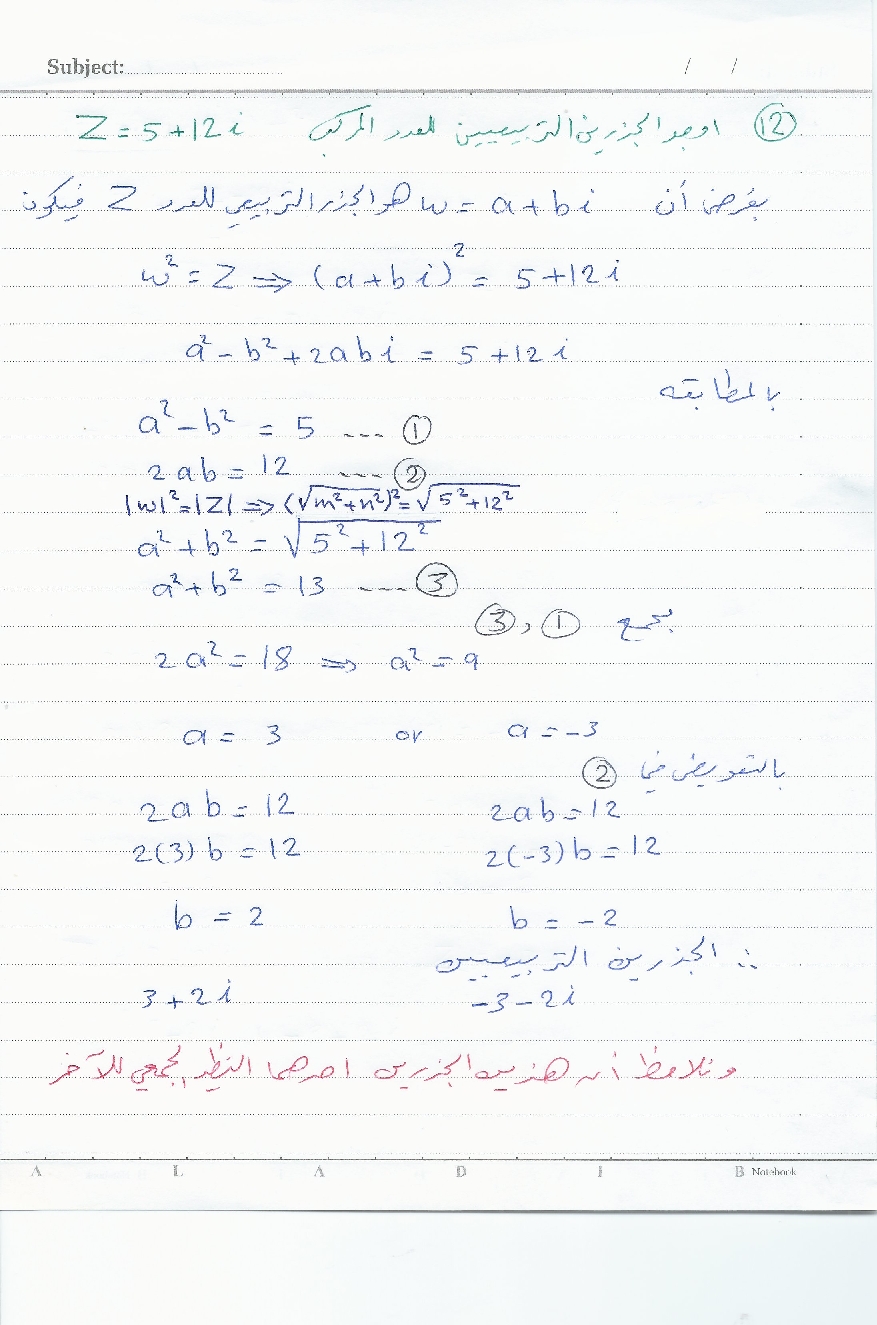 Subject: / /
⑫ اوجد الجزرين التربيعيين للعدد المركب Z = 5 + 12 i
بفرض أن w = a + b i هو الجزر التربيعي للعدد Z فيكون
w² = Z ⇒ (a + b i)² = 5 + 12 i
a² - b² + 2 a b i = 5 + 12 i
بالمطابقه
a² - b² = 5 --- ①
2 a b = 12 ---- ②
|w|² = |Z| ⇒ (√m² + n²)² = √5² + 12²
a² + b² = √5² + 12²
a² + b² = 13 ---- ③
بجمع ① , ③
2 a² = 18 ⇒ a² = 9
a = 3 or a = -3
بالتعويض في ②
2 a b = 12 2 a b = 12
2 (3) b = 12 2 (-3) b = 12
b = 2 b = - 2
∴ الجزرين التربيعيين
3 + 2 i -3 - 2 i
ونلاحظ أن هذين الجزرين احدهما النظير الجمعي للآخر
A L A D I B Notebook